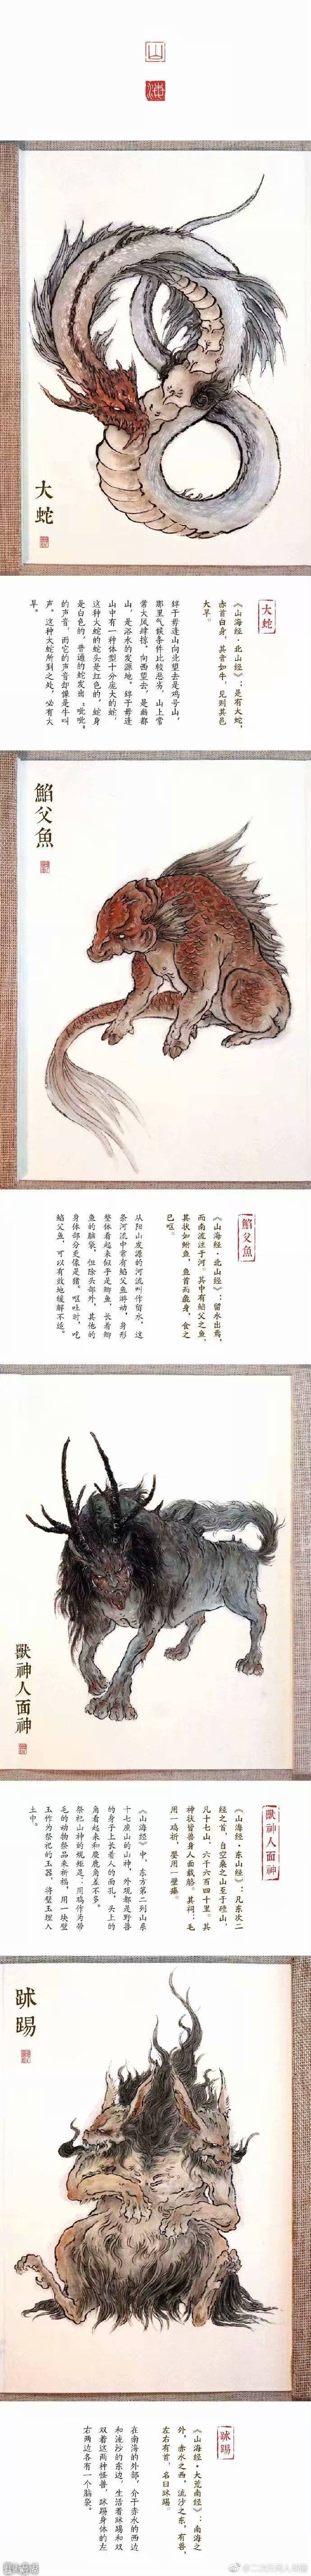 山
海
大蛇
大蛇
《山海经·北山经》：是有大蛇，
赤首白身，其音如牛，见则其邑
大旱。
錞于毋逢山向北望去是鸡号山，
那里气候条件比较恶劣，山上常
常大风肆掠。向西望去，是幽都
山，是浴水的发源地。錞于毋逢
山中有一种体型十分庞大的蛇，
这种大蛇的蛇头是红色的，蛇身
是白色的，普通的蛇发出“呲呲”
的声音，而它的声音却像是牛叫
声。这种大蛇所到之处，必有大
旱。
䱤父魚
䱤父魚
《山海经·北山经》：留水出焉，
而南流注于河。其中有䱤父之鱼，
其状如鲋鱼，鱼首而彘身，食之
已呕。
从阳山发源的河流叫作留水，这
条河流中常有䱤父鱼游动，身形
整体看起来似乎是鲫鱼，长着鲫
鱼的脑袋，但除头部外，其他的
身体部分更像是猪。呕吐时，吃
䱤父鱼，可以有效地缓解不适。
獸神人面神
獸神人面神
《山海经·东山经》：凡东次二
经之首，自空桑之山至于䃌山，
凡十七山，六千六百四十里。其
神状皆兽身人面载觡。其祠：毛
用一鸡祈，婴用一璧瘗。
《山海经》中，东方第二列山系
十七座山的山神，外观都是野兽
的身子上长着人的面孔，头上的
角看起来和麋鹿角差不多。
祭祀山神的规矩是：用鸡作为带
毛的动物祭品来祈福，用一块璧
玉作为祭祀的玉器，将璧玉埋入
土中。
䟣踢
䟣踢
《山海经·大荒南经》：南海之
外，赤水之西，流沙之东，有兽，
左右有首，名曰䟣踢。
在南海的外部，介于赤水的西边
和流沙的东边，生活着䟣踢和双
双着这两种怪兽，䟣踢身体的左
右两边各有一个脑袋。